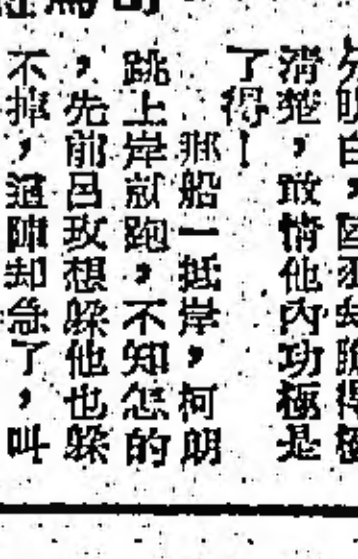 分明白，因須聽得極
清楚，敢情他內功極是
了得！
那船一抵岸，柯朗
跳上岸就跑，不知怎的
，先前呂玫想躲他也躲
不掉，這陣却急了，叫